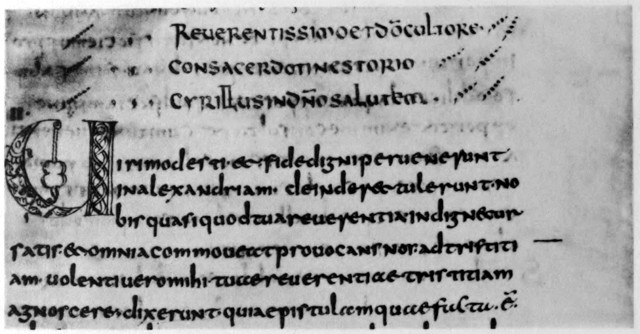 REVERENTISSIMOETDŌCULTORE
CONSACERDOTINESTORIO
CYRILLUSINDÑOSALUTEM
II.
Uirimodesti·et·fidedigniperuenerunt
inalexandriam·deinderettulerunt·no
bisquasiquodtuareuerentiaindignetur
satis·etomniacommoueatprouocansnos·adtristiti
am·uolentiueromihi·tuaereuerentiaetristitiam
agnoscere·dixerunt·quiaepistulamquaefultu·ē·